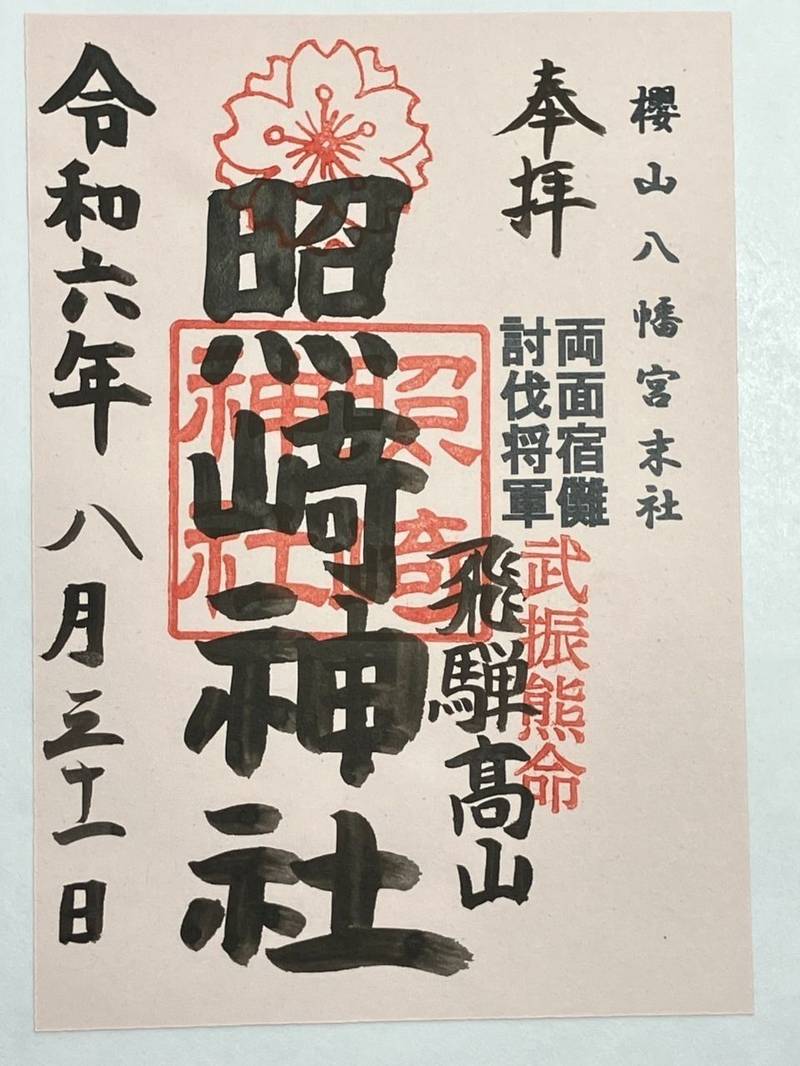 櫻山八幡宮末社
奉拝
両面宿儺
討伐将軍
武振熊命
飛騨髙山
照﨑神社
照﨑
神社
令和六年八月三十一日